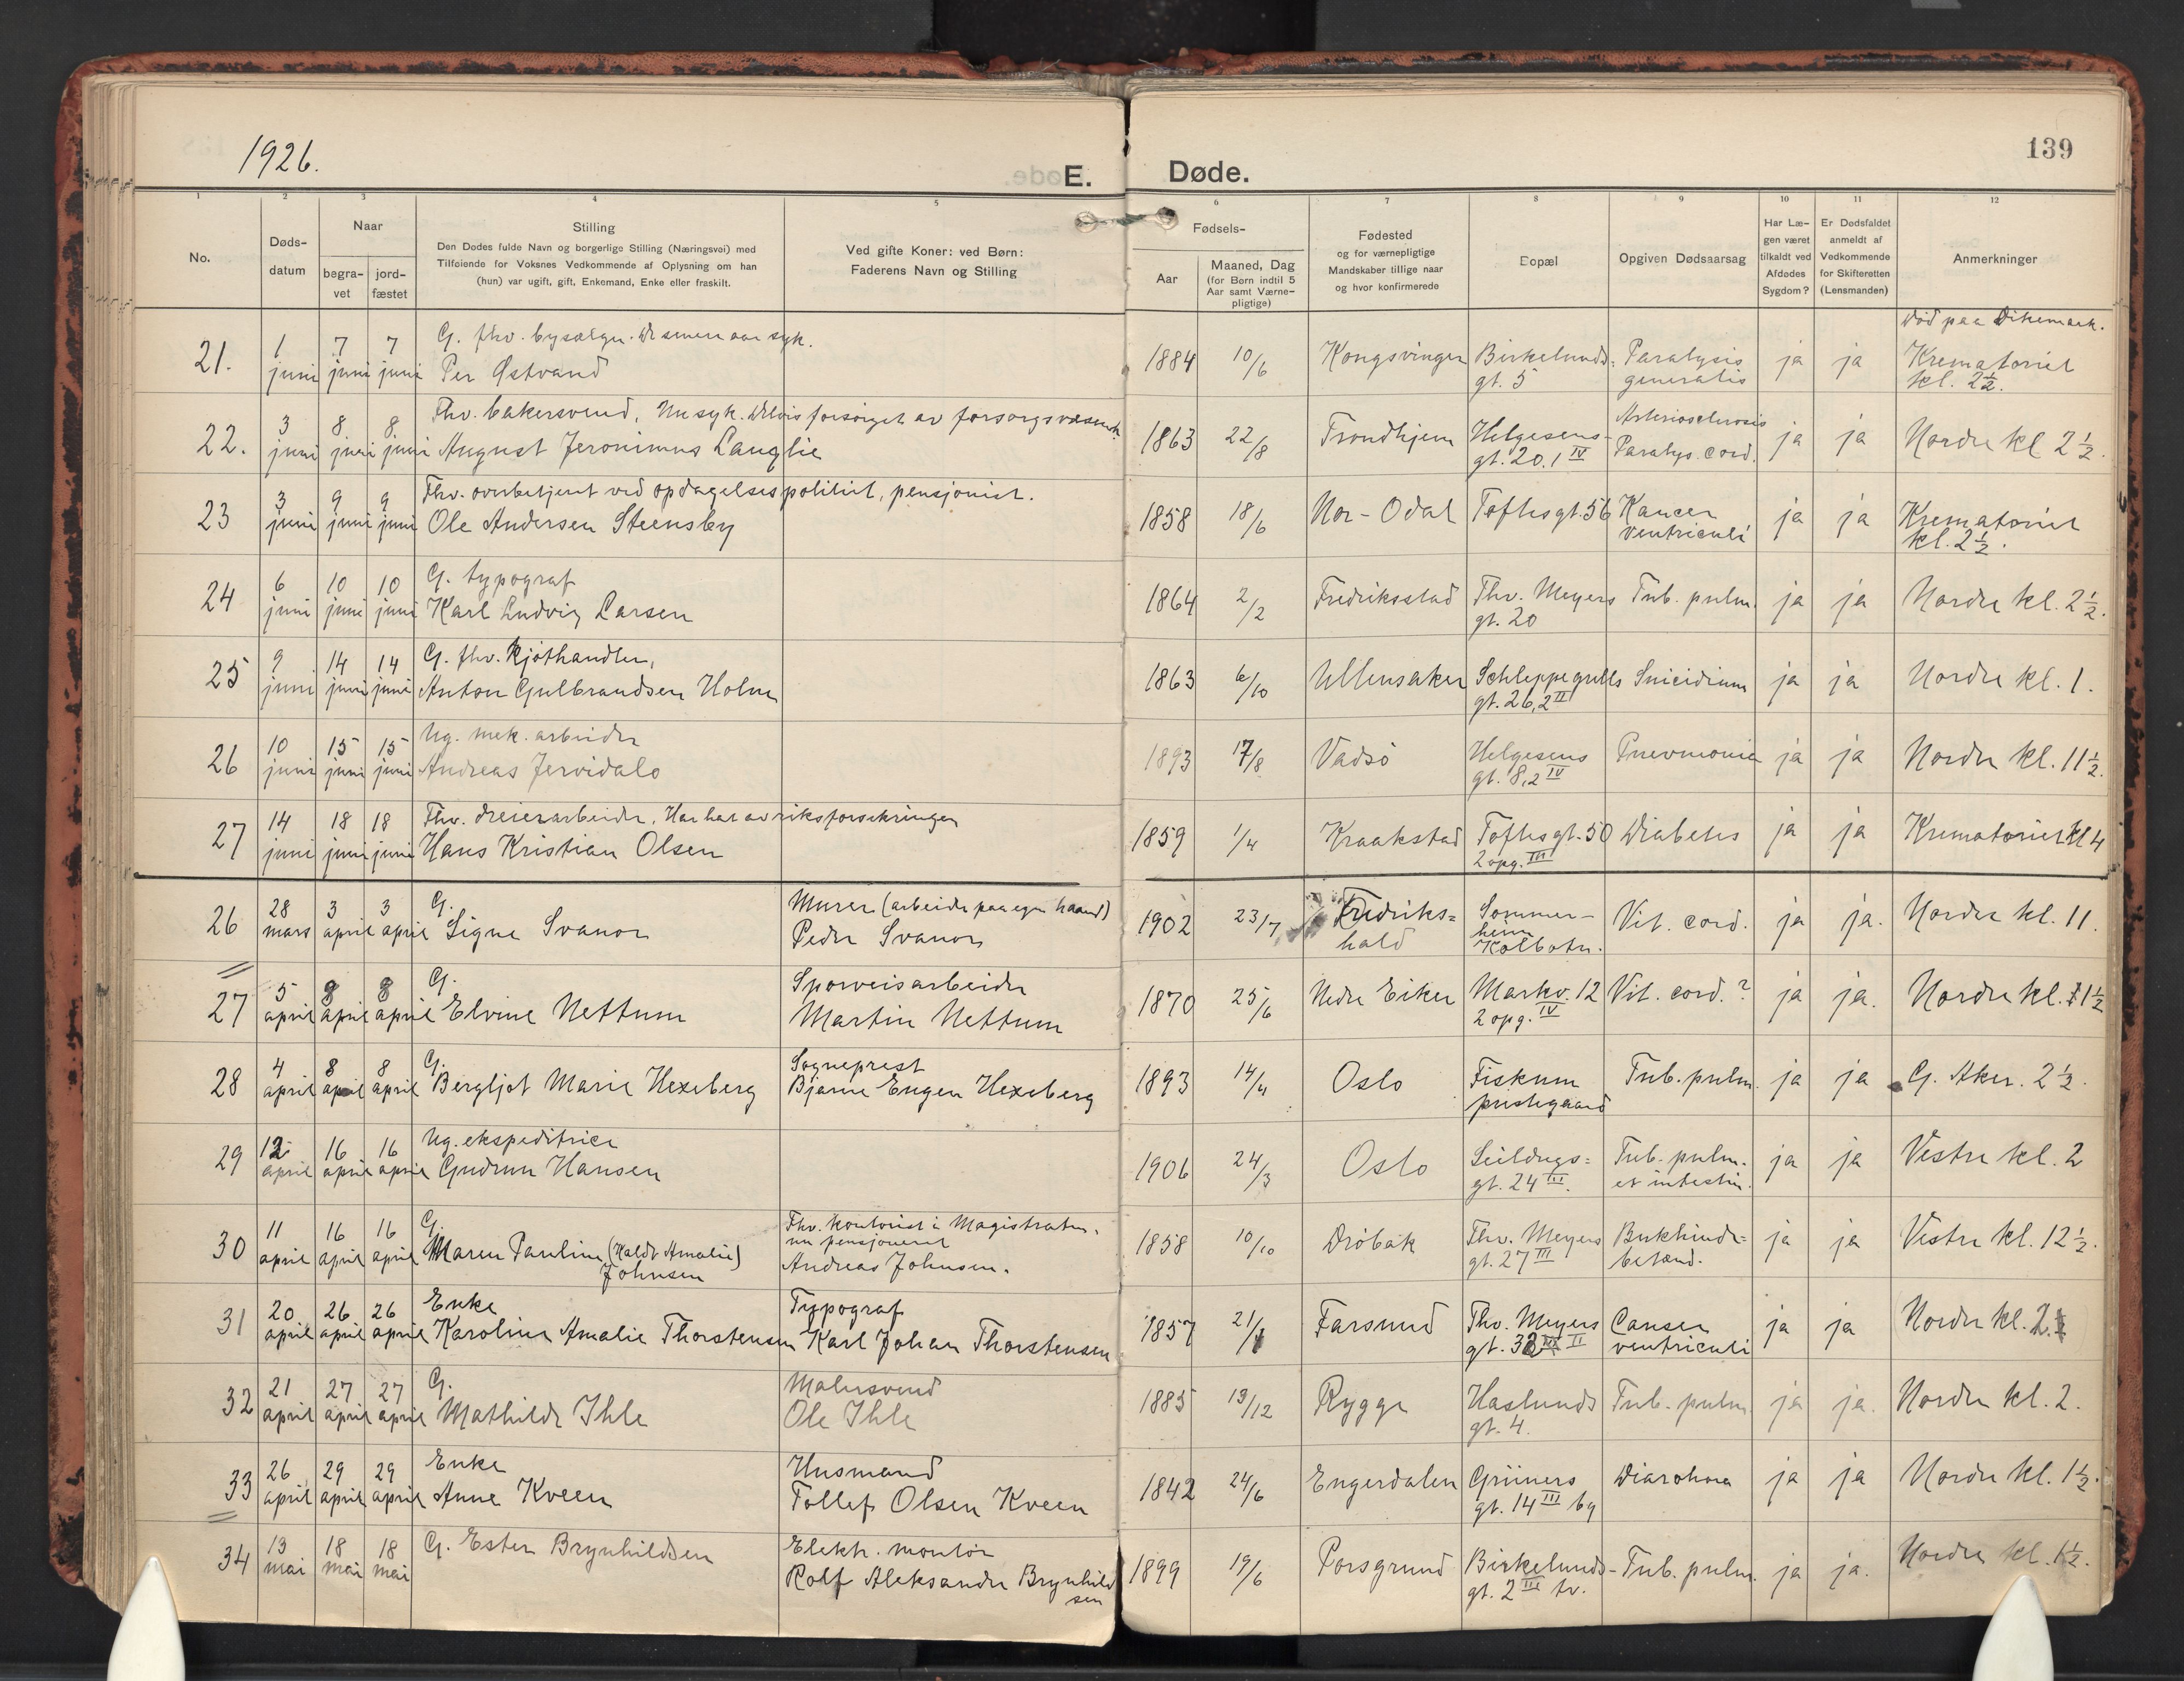 1926.
E.
Døde.
139
1
2
3
4
5
6
7
8
9
10
11
12
No.
Døds-
datum
Naar
begra-
vet
jord-
fæstet
Stilling
Den Dødes fulde Navn og borgerlige Stilling (Næringsvei) med
Tilføiende for Voksnes Vedkommende af Oplysning om han
(hun) var ugift, gift, Enkemand, Enke eller fraskilt.
Ved gifte Koner: ved Børn:
Faderens Navn og Stilling
Fødsels-
Aar
Maaned, Dag
(for Børn indtil 5
Aar samt Værne-
pligtige)
Fødested
og for værnepligtige
Mandskaber tillige naar
og hvor konfirmerede
Bopæl
Opgiven Dødsaarsag
Har Læ-
gen været
tilkaldt ved
Afdødes
Sygdom?
Er Dødsfaldet
anmeldt af
Vedkommende
for Skifteretten
(Lensmanden)
Anmerkninger
21. 1 juni 7 juni 7 juni
G. fhv. bysælger. De senere aar syk.
Per Østvand
1884 10/6 Kongsvinger
Birkelunds-
gt. 5
Paralysis
generalis
ja ja
Død paa Dikemark.
Krematoriet
kl. 2½.
22. 3 juni 8 juni 8 juni
Fhv. bakersvend. Nu syk. Delvis forsørget av forsorgsvæsenet.
August Jeronimus Langlie
1863 22/8 Trondhjem
Helgesens-
gt. 20.1 IV
Arteriosclerosis
Paralys. cord.
ja ja
Nordre kl 2½.
23 3 juni 9 juni 9 juni
Fhv. overbetjent ved opdagelsespolitiet, pensjonist.
Ole Andersen Steensby
1858 18/6 Nor-Odal
Toftesgt. 56
Kancer
ventriculi
ja ja
Krematoriet
kl. 2½.
24 6 juni 10 juni 10 juni
G. typograf
Karl Ludvig Larsen
1864 2/2 Fredriksstad
Thv. Meyers
gt. 20
Tub. pulm.
ja ja
Nordre kl. 2½.
25 9 juni 14 juni 14 juni
G. fhv. kjøthandler,
Anton Gulbrandsen Holm
1863 6/10 Ullensaker
Schleppegrells
gt. 26,2 II
Suicidium
ja ja
Nordre kl. 1.
26 10 juni 15 juni 15 juni
Ug. mek. arbeider
Andreas Jervidalo
1893 17/8 Vadsö
Helgesens
gt. 8,2 IV
Pnevmonia
ja ja
Nordre kl. 11½.
27 14 juni 18 juni 18 juni
Fhv. dreierarbeider. Har hat av riksforsikringen
Hans Kristian Olsen
1859 1/4 Kraakstad
Toftesgt. 50
2 opg. III
Diabetes
ja ja
Krematoriet kl 4
26 28 mars 3 april 3 april
G.
Signe Svanor
Murer (arbeider paa egen haand)
Peder Svanor
1902 23/7
Fredriks=
hald
Sommer-
heim
Kolbotn.
Vit. cord.
ja ja.
Nordre kl. 11.
27 5 april 8 april 8 april
G.
Elvine Nettum
Sporveisarbeider
Martin Nettum
1870 25/6 Nedre Eiker
Markv. 12
2 opg. IV
Vit. cord.?
ja ja.
Nordre kl. 1½
28 4 april 8 april 8 april
G.
Bergljot Marie Hexeberg
Sogneprest
Bjarne Eugen Hexeberg
1893 14/4 Oslo
Fiskum
prestegaard
Tub. pulm.
ja ja
G. Aker. 2½.
29 12 april 16 april 16 april
Ug. ekspeditrice
Gudrun Hansen
1906 24/3 Oslo
Seildugs=
gt. 24 III.
Tub. pulm.
et intestin.
ja ja
Vestre kl. 2
30 11 april 16 april 16 april
G.
Maren Pauline (kaldt Amalie)
Johnsen
Fhv. kontorist i Magistraten.
nu pensjoneret
Andreas Johnsen.
1858 10/10 Dröbak
Thv. Meyers
gt. 27 III
Bukhinde=
betænd.
ja ja
Vestre kl. 12½.
31 20 april 26 april 26 april
Enke
Karoline Amalie Thorstensen
Typograf
Karl Johan Thorstensen
1857 21/1 Farsund
Thv. Meyers
gt. 32 II
Canser
ventriculi
ja ja
Nordre kl. 2.
32 21 april 27 april 27 april
G.
Mathilde Ihle
Malersvend
Ole Ihle
1885 13/12 Rygge
Haslunds
gt. 4.
Tub. pulm.
ja ja.
Nordre kl. 2.
33 26 april 29 april 29 april
Enke
Anne Kveen
Husmand
Tollef Olsen Kveen
1842 24/6 Engerdalen
Grüners
gt. 14 III bg
Diarohoea
ja ja
Nordre kl. 1½.
34 13 mai 18 mai 18 mai
G. Ester Brynhildsen
Elektr. montör
Rolf Aleksander Brynhild
sen
1899 19/6 Porsgrund
Birkelunds-
gt. 2 III tv.
Tub. pulm.
ja ja.
Nordre kl. 1½.